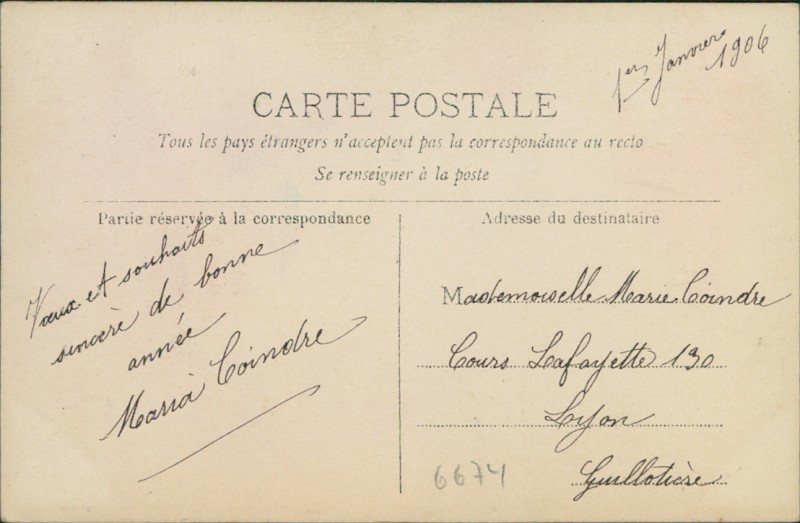 1er Janvier
1906
CARTE POSTALE
Tous les pays étrangers n'acceptent pas la correspondance au recto
Se renseigner à la poste
Partie réservée à la correspondance
Vœux et souhaits
sincère de bonne
année
Maria Coindre
Adresse du destinataire
Mademoiselle Marie Coindre
Cours Lafayette 130
Lyon
Guillotière
6674